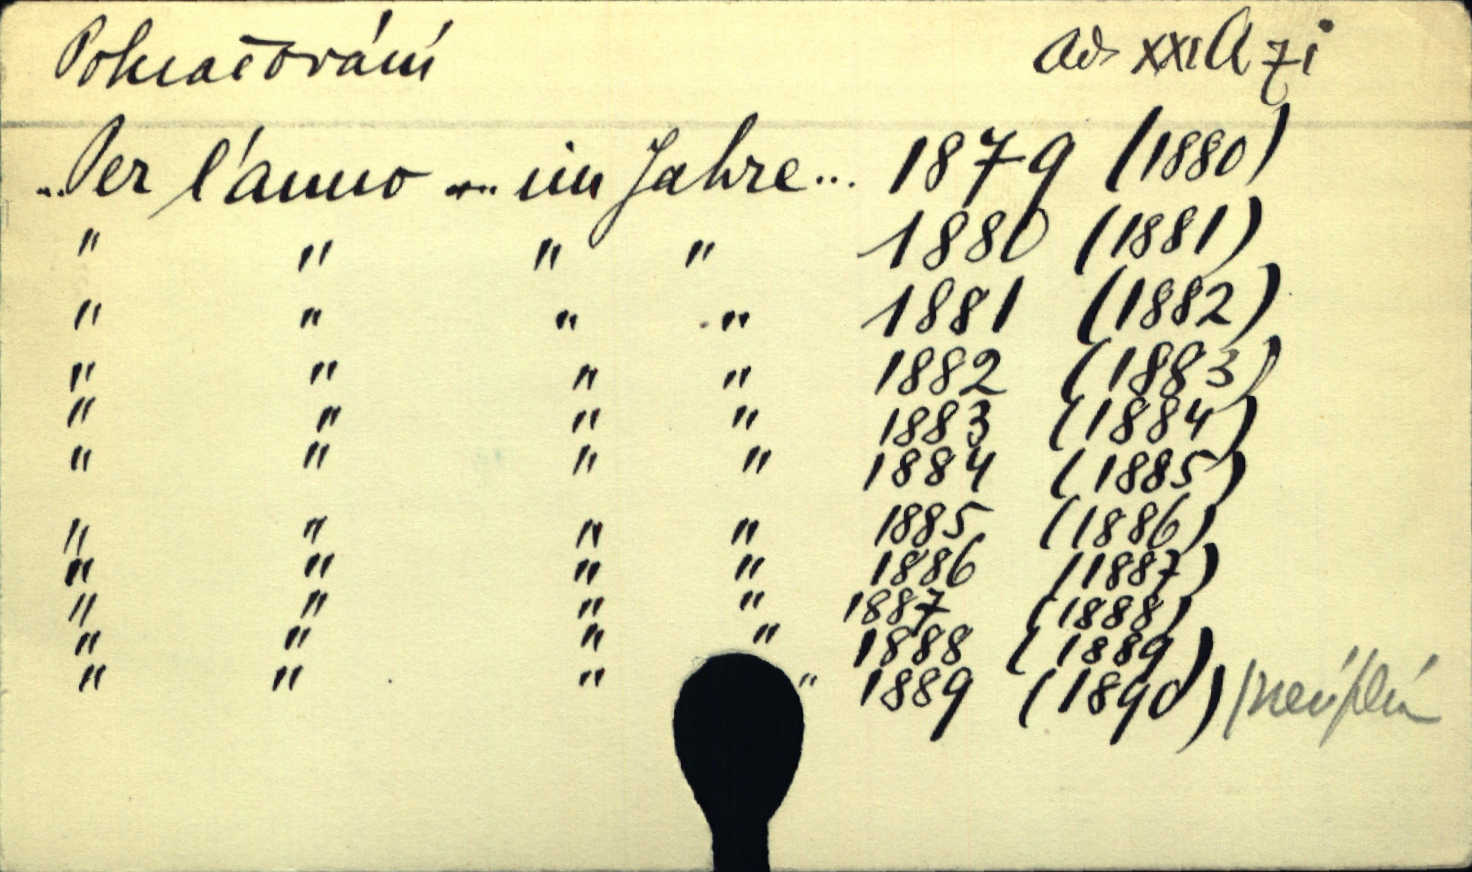 Pokračování ad XXI A 7i
..Per l'anno ... im Jahre... 1879 (1880)
" " " " 1880 (1881)
" " " " 1881 (1882)
" " " " 1882 (1883)
" " " " 1883 (1884)
" " " " 1884 (1885)
" " " " 1885 (1886)
" " " " 1886 (1887)
" " " " 1887 (1888)
" " " " 1888 (1889)
" " " " 1889 (1890) /neúpln